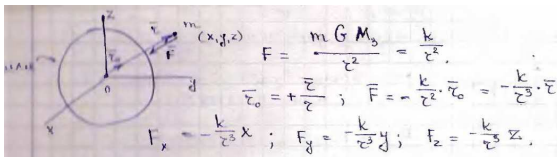 z
r̄ m (x,y,z)
F̄
r̄₀
0
y
x
F = m G M₃ / r² = k / r².
r̄₀ = + r̄ / r ; F̄ = - k / r² · r̄₀ = - k / r³ · r̄
Fₓ = - k / r³ x ; F_y = - k / r³ y ; F_z = - k / r³ z.